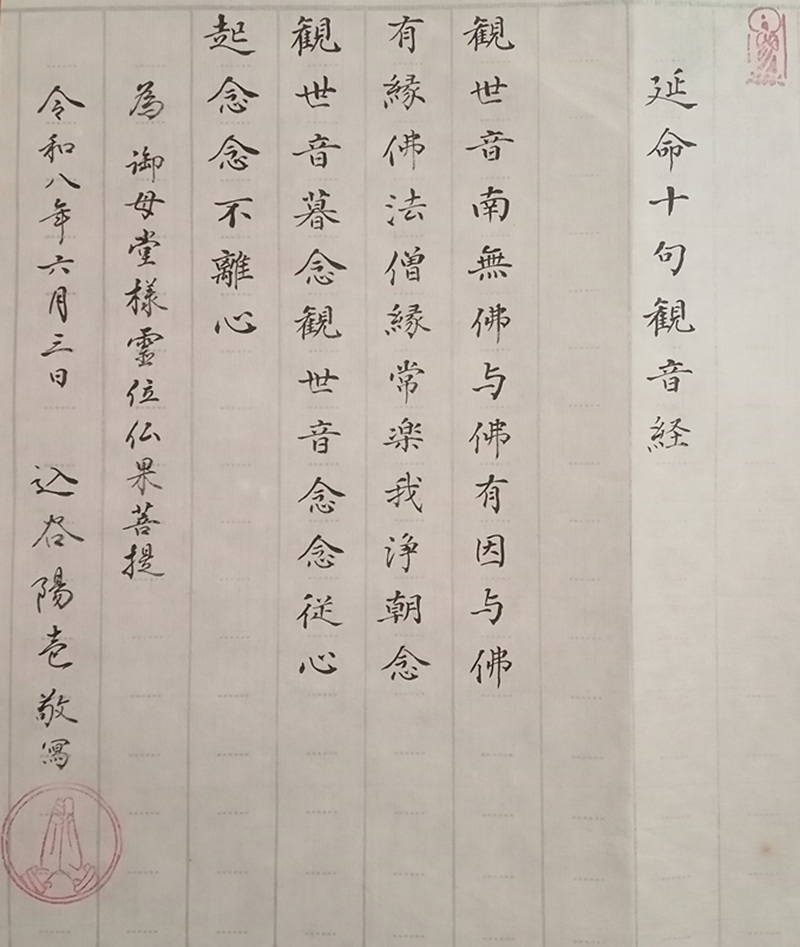 延命十句観音経
観世音南無佛与佛有因与佛
有縁佛法僧縁常楽我浄朝念
観世音暮念観世音念念従心
起念念不離心
為御母堂様霊位仏果菩提
令和八年六月三日 込谷陽壱敬写